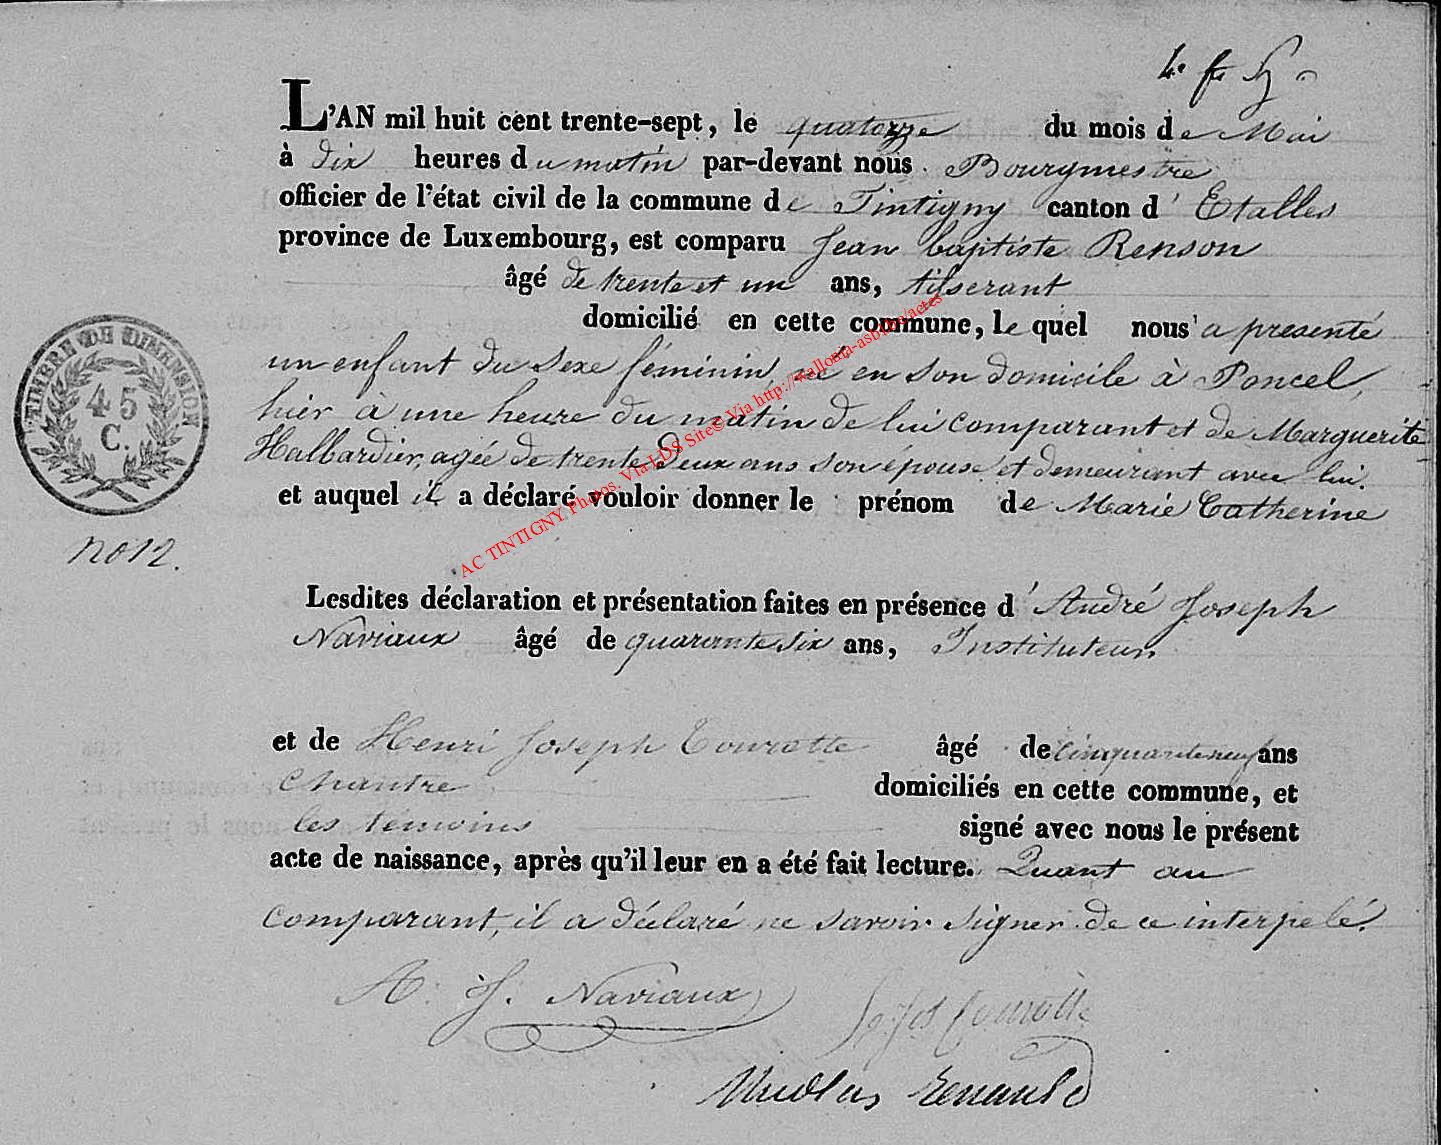 L'AN mil huit cent trente-sept, le quatorze du mois de Mai
à dix heures du matin par-devant nous Bourgmestre
officier de l'état civil de la commune de Tintigny canton d'Etalles
province de Luxembourg, est comparu Jean baptiste Renson
âgé de trente et un ans, tisserant
domicilié en cette commune, le quel nous a presenté
un enfant du sexe féminin né en son domicile à Poncel,
hier à une heure du matin de lui comparant et de Marguerite
Halbardier, agée de trente Deux ans son épouse et demeurant avec lui.
et auquel il a déclaré vouloir donner le prénom de Marie Catherine
TIMBRE DE DIMENSION
45
C.
no 12.
AC TINTIGNY. Photos. Via LDS Site© Via http://wallonia-asbl.be/actes
Lesdites déclaration et présentation faites en présence d'André Joseph
Naviaux âgé de quarante six ans, Instituteur
et de Henri Joseph Tourotte âgé de cinquante neuf ans
Chantre domiciliés en cette commune, et
les témoins signé avec nous le présent
acte de naissance, après qu'il leur en a été fait lecture. Quant au
comparant, il a déclaré ne savoir signer de ce interpelé.
A. J. Naviaux
Tourotte
Nicolas Renauld